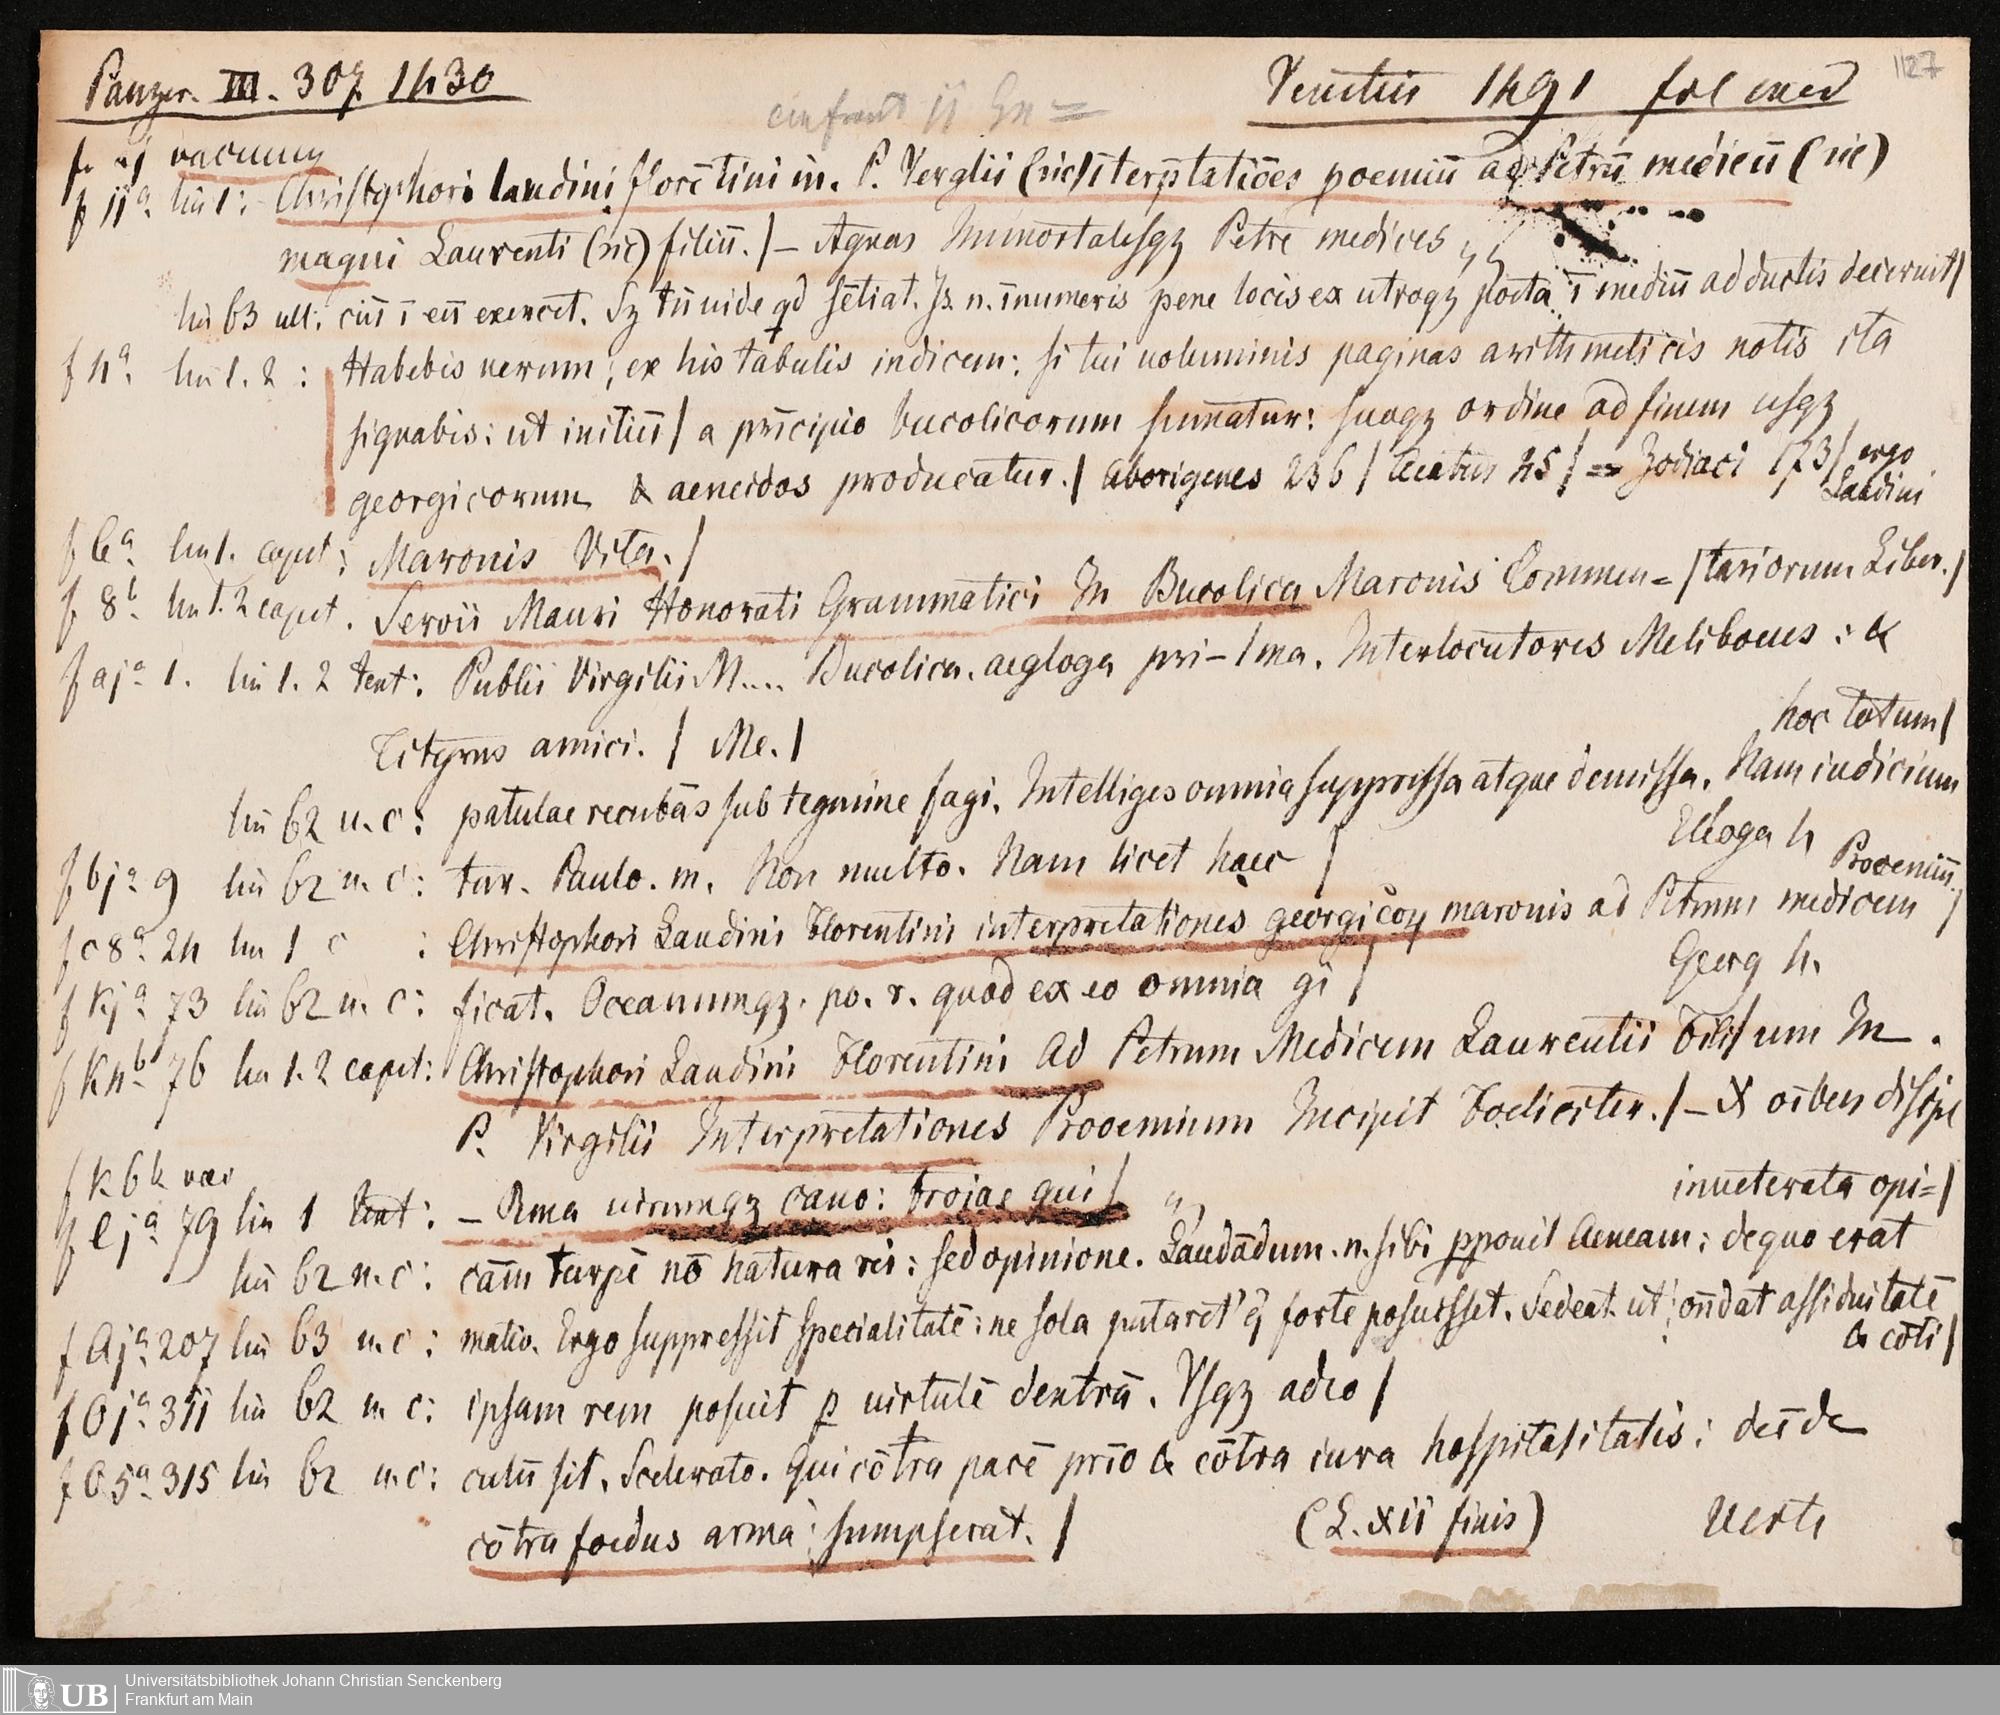 Panzer. III. 307. 1430
Venetiis 1491 fol med
1127
f. aj vacuum
f ij a. lin 1: Christophori landini florētini in. P. Verglii (sic) īterp̄tatiōes poemiū ad Petrū medicū (sic)
magni Laurenti (sic) filiū. / – Agnas Immortalesqȝ Petre medices
lin 63 ult: cuī ī eū exercet. Sȝ tū uide qd sētiat. Is. n. īnumeris pene locis ex utroqȝ poeta ī mediū adductis decernit /
f 4 a. lin 1. 2: Habebis uerum; ex his tabulis indicem: si tui uoluminis paginas arithmeticis notis ita
signabis: ut initiū / a prīcipio bucolicorum sumatur: suoqȝ ordine ad finem usqȝ
georgicorum & aeneidos producatur. / Aborigenes 236 / 45 / = Zodiaci 173 / ergo
Landini
f 6 a. lin 1. caput: Maronis Vita. /
f 8 b lin 1. 2 caput. Servii Mauri Honorati Grammatici In Bucolica Maronis Commen= / tariorum Liber. /
f aj a 1. lin 1. 2 text: Publii Virgilii M.... Bucolica. aegloga pri– / ma. Interlocutores Meliboeus: &
Tityrus amici. / Me. /
hoc totum /
lin 62 u. c: patulae recubās sub tegmine fagi. Intelliges omnia suppressa atque demissa. Nam iudicium
Ekloga 4
f bj a 9 lin 62 u. c: tur. Paulo. m. Non multo. Nam licet haec /
Prooemiū /
f c8 a 24 lin 1 c: Christophori Landini Florentini interpretationes georgicoꝝ maronis ad Petrum medicem /
Georg 4.
f kj a 73 lin 62 u. c: ficat. Oceanumqȝ. po. r. quod ex eo omnia gi /
f k4 b 76 lin 1. 2 caput: Christophori Landini Florentini Ad Petrum Medicem Laurentii Fili / um In
P. Virgilii Interpretationes Prooemium Incipit Foeliciter. / – X
f k6 b vac
inueterata opi= /
f lj a 79 lin 1 text: – Rma uirumqȝ cano: troiae qui /
lin 62 u. c: cām turpē nō natura rei: sed opinione. Laudādum. n. sibi ꝓponit Aeneam: de quo erat
f Aj a 207 lin 63 u. c: matio. Ergo suppressit specialitatē: ne sola putaret' forte posuisset. Sedeat ut: ondat assiduitatē
& cōti /
f Oj a 311 lin 62 u. c: ipsam rem posuit ꝑ uirtutē dextrā. Vsqȝ adeo /
f O5 a 315 lin 62 u. c: culū sit. Scelerato. Qui cōtra pacē prīo & cōtra iura hospitalitatis: deīde
cōtra foedus arma sumpserat. / (L. xii finis) Verte
UB
Universitätsbibliothek Johann Christian Senckenberg
Frankfurt am Main